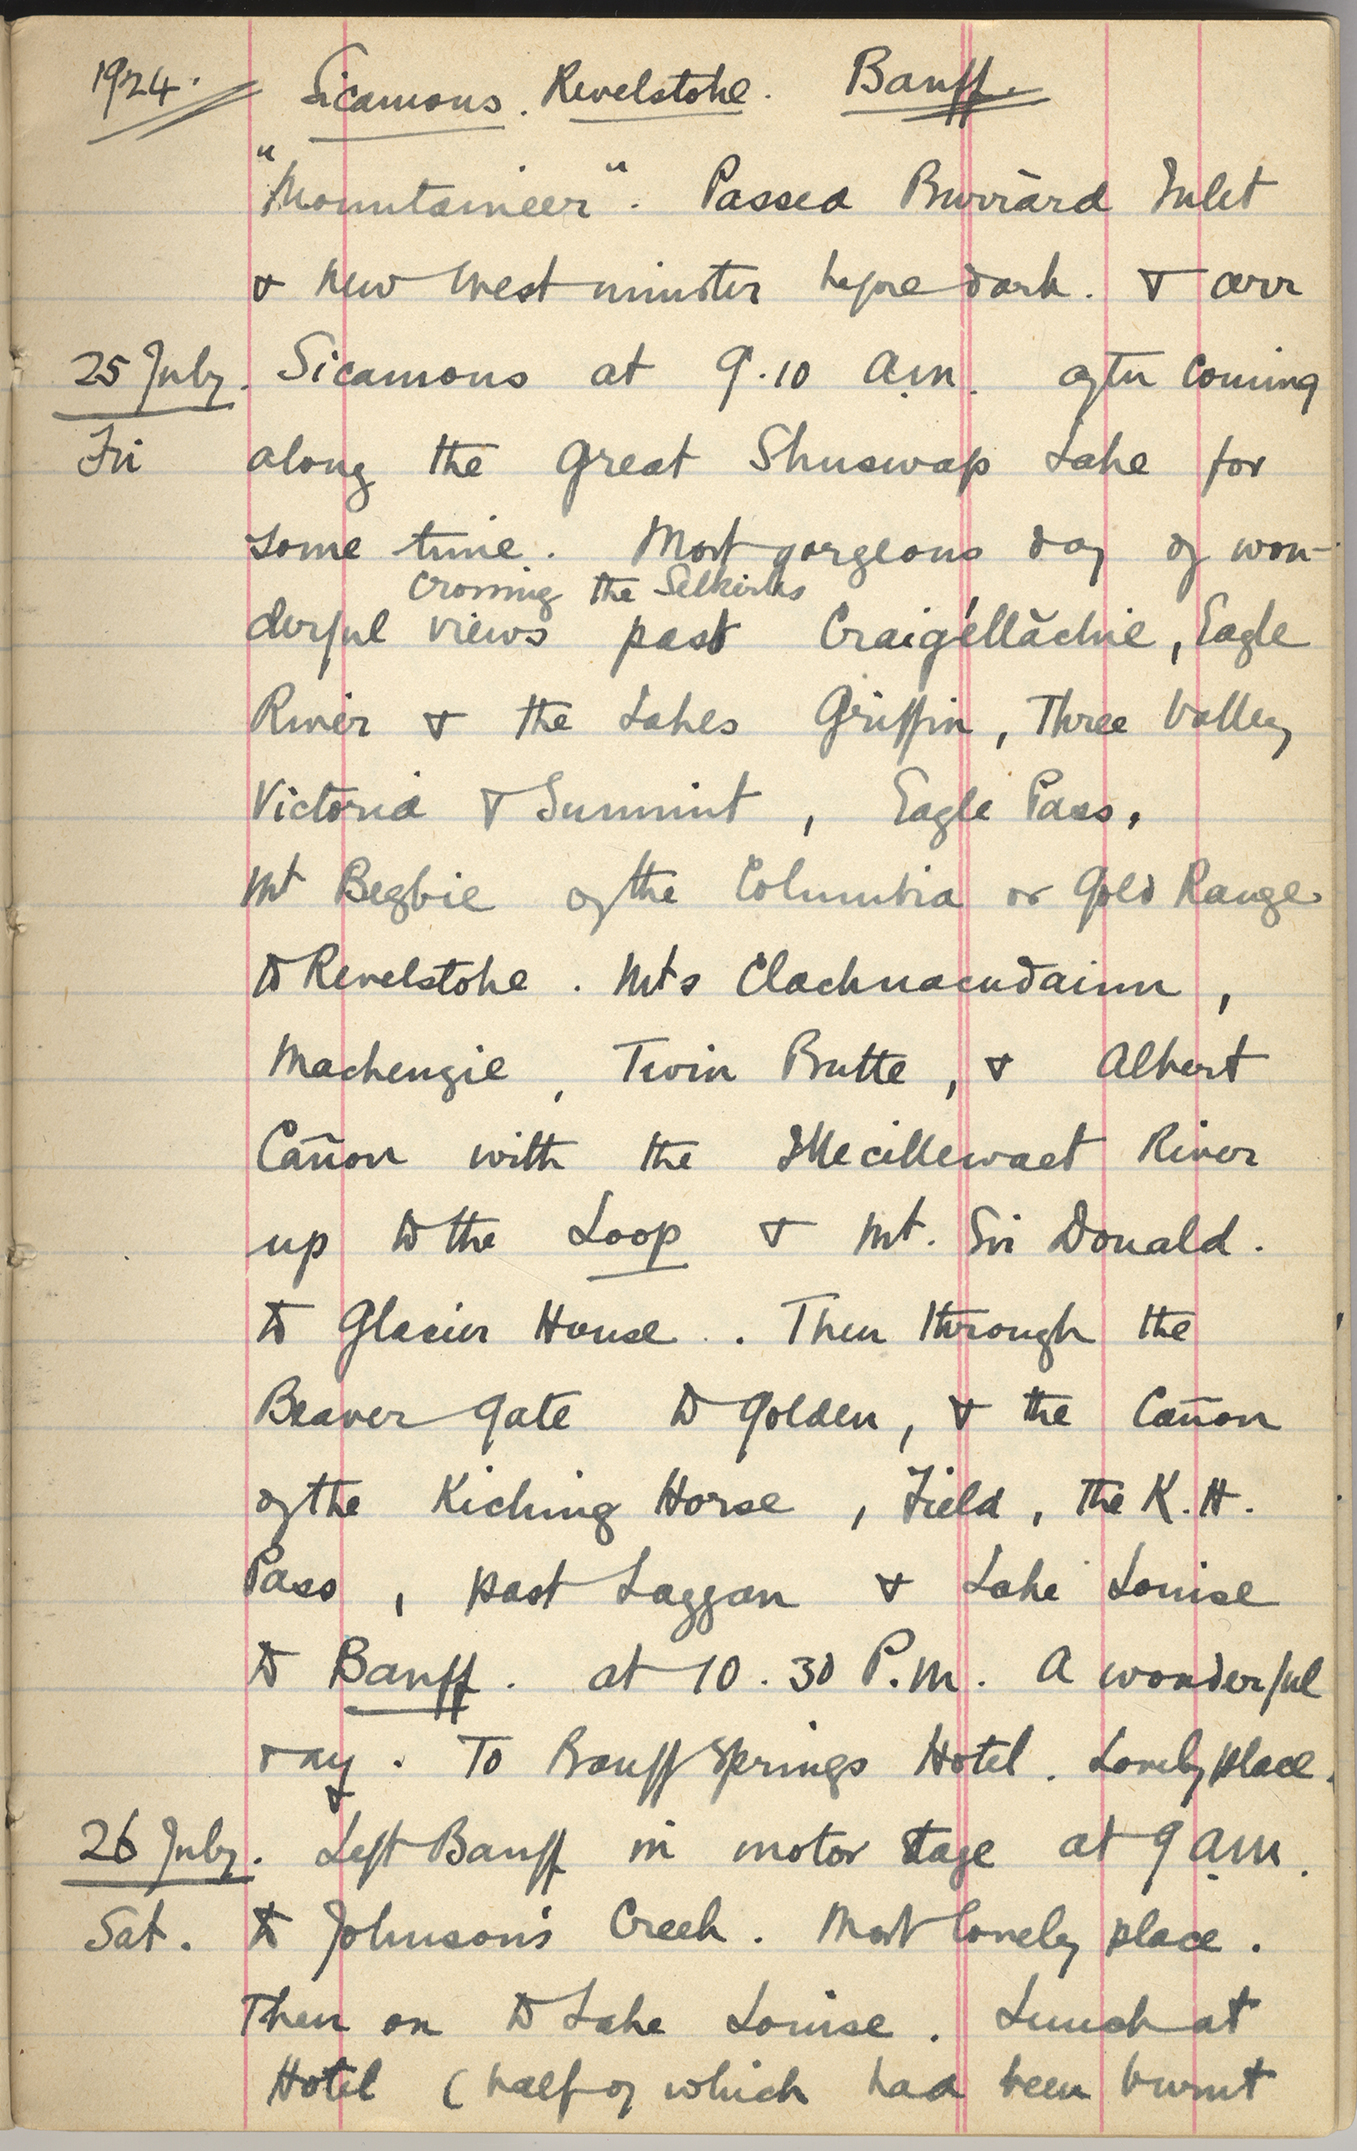 1924. Sicamous. Revelstoke. Banff.
"Mountaineer". Passed Burrard Inlet
& New Westminster before dark. & arr
25 July. Sicamous at 9.10 a.m. after coming
Fri along the great Shuswap Lake for
some time. Most gorgeous day of won-
crossing the Selkirks
derful views past Craigéllăchie, Eagle
River & the Lakes Griffin, Three Valley
Victoria & Summit, Eagle Pass,
Mt Begbie of the Columbia or Gold Range
to Revelstoke. Mts Clachnacudainn,
Mackenzie, Twin Butte, & Albert
Cañon with the Illecillewaet River
up to the Loop & Mt. Sir Donald.
to Glacier House.. Then through the
Beaver gate to Golden, & the Cañon
of the Kicking Horse, Field, the K.H.
Pass, past Laggan & Lake Louise
to Banff. at 10.30 P.M. A wonderful
day. To Banff Springs Hotel. Lovely place.
26 July. & Left Banff in motor stage at 9 a.m.
Sat. to Johnson's Creek. Most lovely place.
Then on to Lake Louise. Lunch at
Hotel (half of which had been burnt